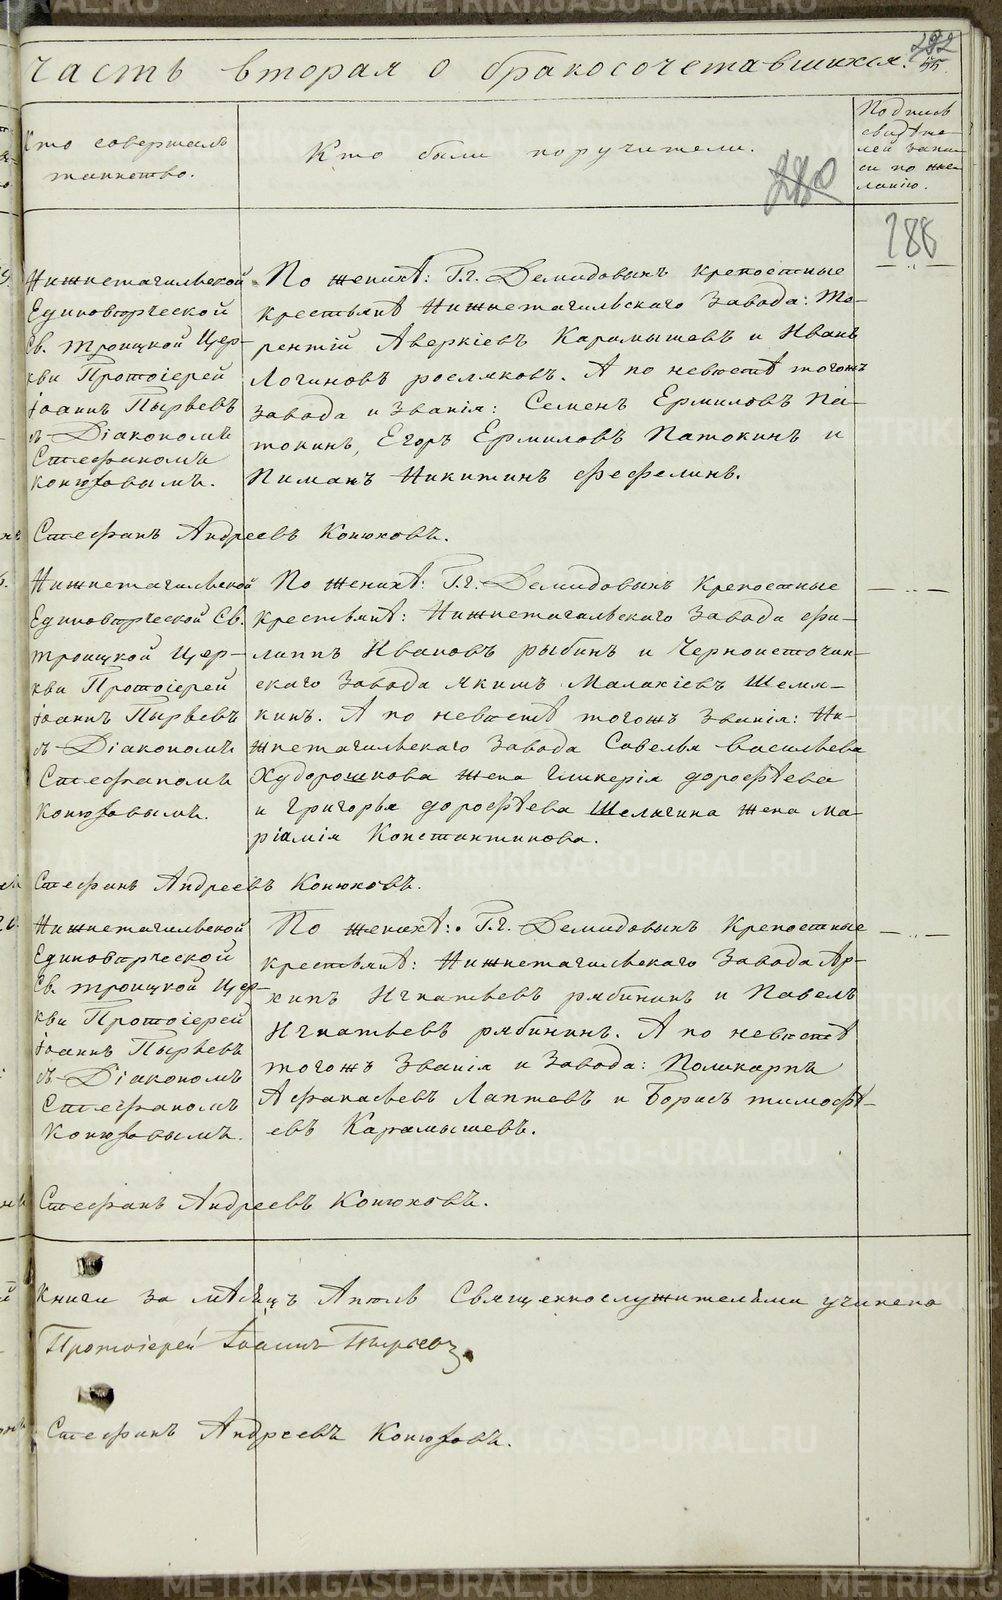 METRIKI.GASO-URAL.RU
часть вторая о бракосочетавшихся.
Кто совершалъ
таинство.
Кто были поручители.
Подпись
свидѣте-
лей запи-
си по же-
ланію.
280
188
Нижнетагильской
Единовѣрческой
Св. троицкой Цер-
кви Протоіерей
Іоаннъ Пырьевъ
съ Діакономъ
Стефаномъ
Конюховымъ.
По женихѣ: Г.г. Демидовыхъ крепостные
крестьянѣ Нижнетагильскаго Завода: Те-
рентій Аверкіевъ Карамышевъ и Иванъ
Логиновъ росляковъ. А по невѣстѣ тогожъ
завода и званія: Семенъ Ермиловъ Па-
токинъ, Егоръ Ермиловъ Патокинъ и
Пиманъ Никитинъ фефелинъ.
Стефанъ Андреевъ Конюховъ.
Нижнетагильской
Единовѣрческой Св.
троицкой Цер-
кви Протоіерей
Іоаннъ Пырьевъ
съ Діакономъ
Стефаномъ
Конюховымъ.
По женихѣ: Г.г. Демидовыхъ Крепостные
крестьянѣ: Нижнетагильскаго Завода фи-
липпъ Ивановъ рыбинъ и Черноисточин-
скаго Завода Якимъ Малахіевъ Шемя-
кинъ. А по невѣстѣ тогожъ званія: Ни-
жнетагильскаго Завода Савелья васильева
Худорошкова жена Гликерія дорофѣева
и Григорья дорофѣева Шелягина жена Ма-
ріамія Константинова.
Стефанъ Андреевъ Конюховъ.
Нижнетагильской
Единовѣрческой
Св. троицкой Цер-
кви Протоіерей
Іоаннъ Пырьевъ
съ Діакономъ
Стефаномъ
Конюховымъ.
По женихѣ: Г.г. Демидовыхъ Крепостные
крестьянѣ: Нижнетагильскаго Завода Ар-
хипъ Игнатьевъ рябининъ и Павелъ
Игнатьевъ рябининъ. А по невѣстѣ
тогожъ званія и Завода: Поликарпъ
Афанасьевъ Лаптевъ и Борисъ тимофѣ-
евъ Карамышевъ.
Стефанъ Андреевъ Конюховъ.
Книги за мѣсяцъ Священнослужителями учинена
Протоіерей Іоаннъ Пырьевъ
Стефанъ Андреевъ Конюховъ.